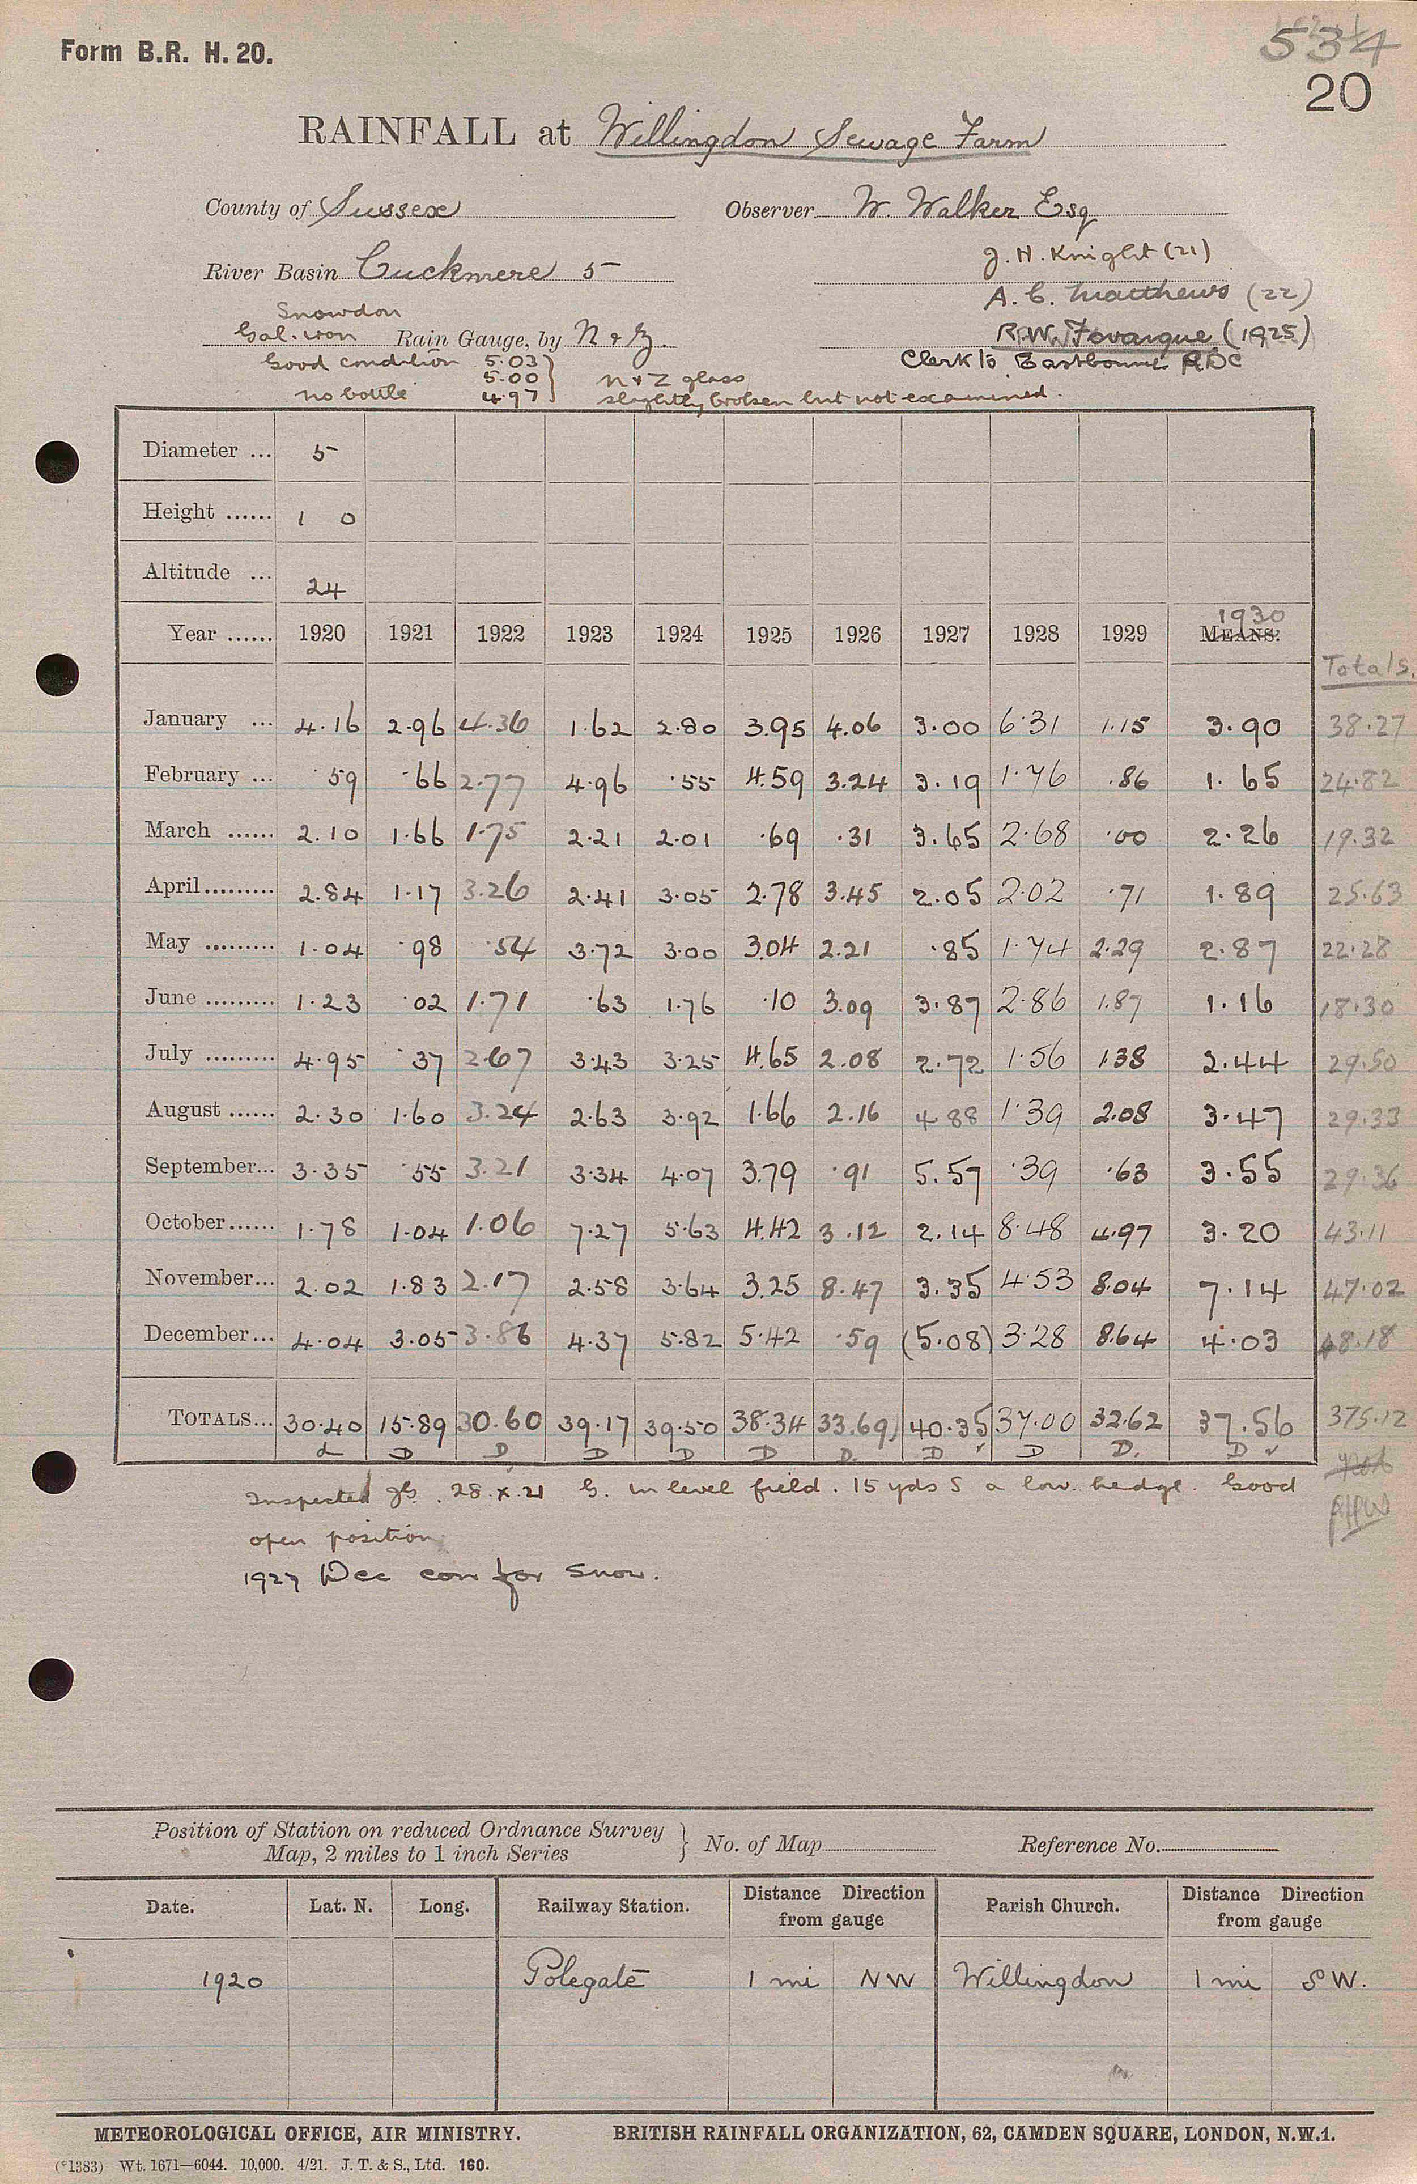 Form B.R. H. 20.
534
20
RAINFALL at Willingdon Sewage Farm
County of Sussex Observer W. Walker Esq
River Basin Cuckmere 5 J. H. Knight (21)
A. C. Matthews (22)
Snowdon
Gal. iron Rain Gauge, by N & Z. R.W. Fovargue (1925)
Good condition 5.03 Clerk to Eastbourne RDC
5.00 N & Z glass
no bottle 4.97 slightly broken but not examined.
Diameter ... 5
Height ...... 1 0
Altitude ... 24
1930
Year ...... 1920 1921 1922 1923 1924 1925 1926 1927 1928 1929 MEANS.
Totals.
January ... 4.16 2.96 4.36 1.62 2.80 3.95 4.06 3.00 6.31 1.15 3.90 38.27
February ... .59 .66 2.77 4.96 .55 4.59 3.24 3.19 1.76 .86 1.65 24.82
March ...... 2.10 1.66 1.75 2.21 2.01 .69 .31 3.65 2.68 .00 2.26 19.32
April......... 2.84 1.17 3.26 2.41 3.05 2.78 3.45 2.05 2.02 .71 1.89 25.63
May ......... 1.04 .98 .54 3.72 3.00 3.04 2.21 .85 1.74 2.29 2.87 22.28
June ......... 1.23 .02 1.71 .63 1.76 .10 3.09 3.87 2.86 1.87 1.16 18.30
July ......... 4.95 .37 2.67 3.43 3.25 4.65 2.08 2.72 1.56 1.38 2.44 29.50
August ...... 2.30 1.60 3.24 2.63 3.92 1.66 2.16 4.88 1.39 2.08 3.47 29.33
September... 3.35 .55 3.21 3.34 4.07 3.79 .91 5.57 .39 .63 3.55 29.36
October...... 1.78 1.04 1.06 7.27 5.63 4.42 3.12 2.14 8.48 4.97 3.20 43.11
November... 2.02 1.83 2.17 2.58 3.64 3.25 8.47 3.35 4.53 8.04 7.14 47.02
December... 4.04 3.05 3.86 4.37 5.82 5.42 .59 (5.08) 3.28 8.64 4.03 48.18
TOTALS... 30.40 15.89 30.60 39.17 39.50 38.34 33.69 40.35 37.00 32.62 37.56 375.12
D D D D D D D D D D
Inspected 28.X.21 G. in level field. 15 yds S a low hedge. Good
open position
1927 Dec corr for snow.
Position of Station on reduced Ordnance Survey
Map, 2 miles to 1 inch Series } No. of Map Reference No.
Date. Lat. N. Long. Railway Station. Distance Direction from gauge Parish Church. Distance Direction from gauge
1920 Polegate 1 mi NW Willingdon 1 mi SW.
METEOROLOGICAL OFFICE, AIR MINISTRY. BRITISH RAINFALL ORGANIZATION, 62, CAMDEN SQUARE, LONDON, N.W.1.
(*1383) Wt. 1671—6044. 10,000. 4/21. J. T. & S., Ltd. 160.